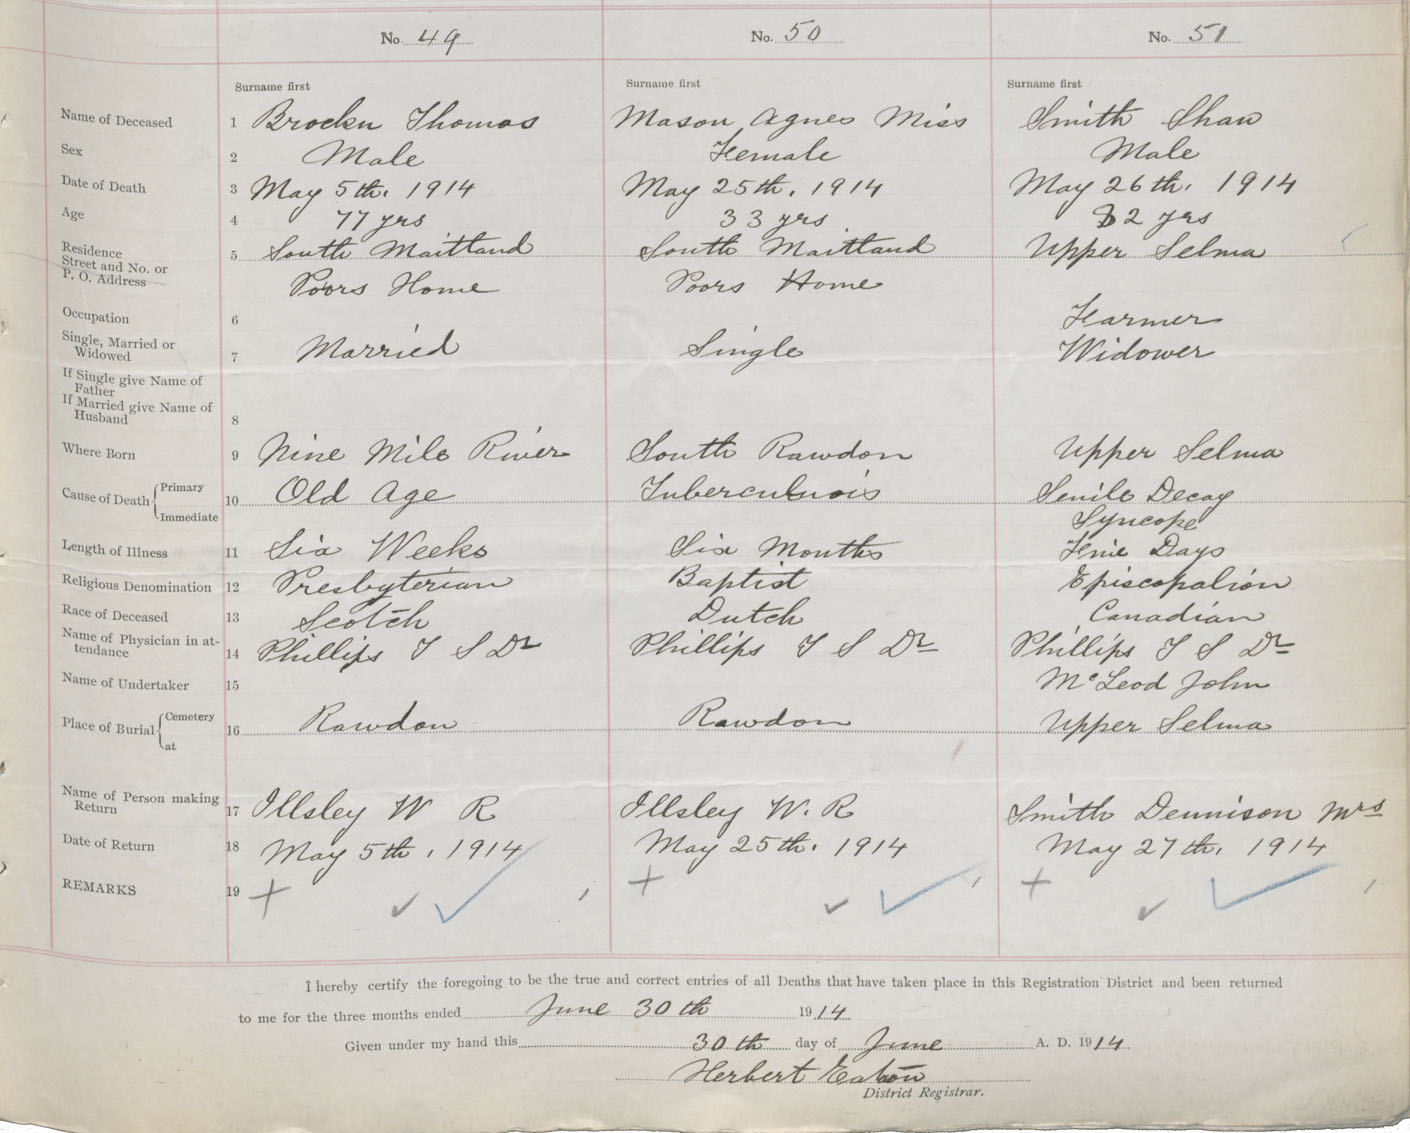 No. 49 No. 50 No. 51
Surname first Surname first Surname first
Name of Deceased 1 Thomas Mason Agnes Miss Smith Shaw
Sex 2 Male Female Male
Date of Death 3 May 5th. 1914 May 25th. 1914 May 26th. 1914
Age 4 77 yrs 33 yrs 82 yrs
Residence
Street and No. or
P. O. Address
5 South Maitland South Maitland Upper Selma
Poors Home Poors Home
Occupation 6 Farmer
Single, Married or
Widowed 7 Married Single Widower
If Single give Name of
Father
If Married give Name of
Husband 8
Where Born 9 Nine Mile River South Rawdon Upper Selma
Cause of Death { Primary 10 Old Age Tuberculosis Senile Decay
Immediate Syncope
Length of Illness 11 Six Weeks Six Months Days
Religious Denomination 12 Presbyterian Baptist Episcopalian
Race of Deceased 13 Scotch Dutch Canadian
Name of Physician in at-
tendance 14 Phillips T S Dr Phillips T S Dr Phillips T S Dr
Name of Undertaker 15 McLeod John
Place of Burial { Cemetery 16 Rawdon Rawdon Upper Selma
at
Name of Person making
Return 17 Illsley W R Illsley W. R Smith Dennison Mrs
Date of Return 18 May 5th, 1914 May 25th. 1914 May 27th, 1914
REMARKS 19
I hereby certify the foregoing to be the true and correct entries of all Deaths that have taken place in this Registration District and been returned
to me for the three months ended June 30th 1914
Given under my hand this 30th day of June A. D. 1914
Herbert Eaton
District Registrar.